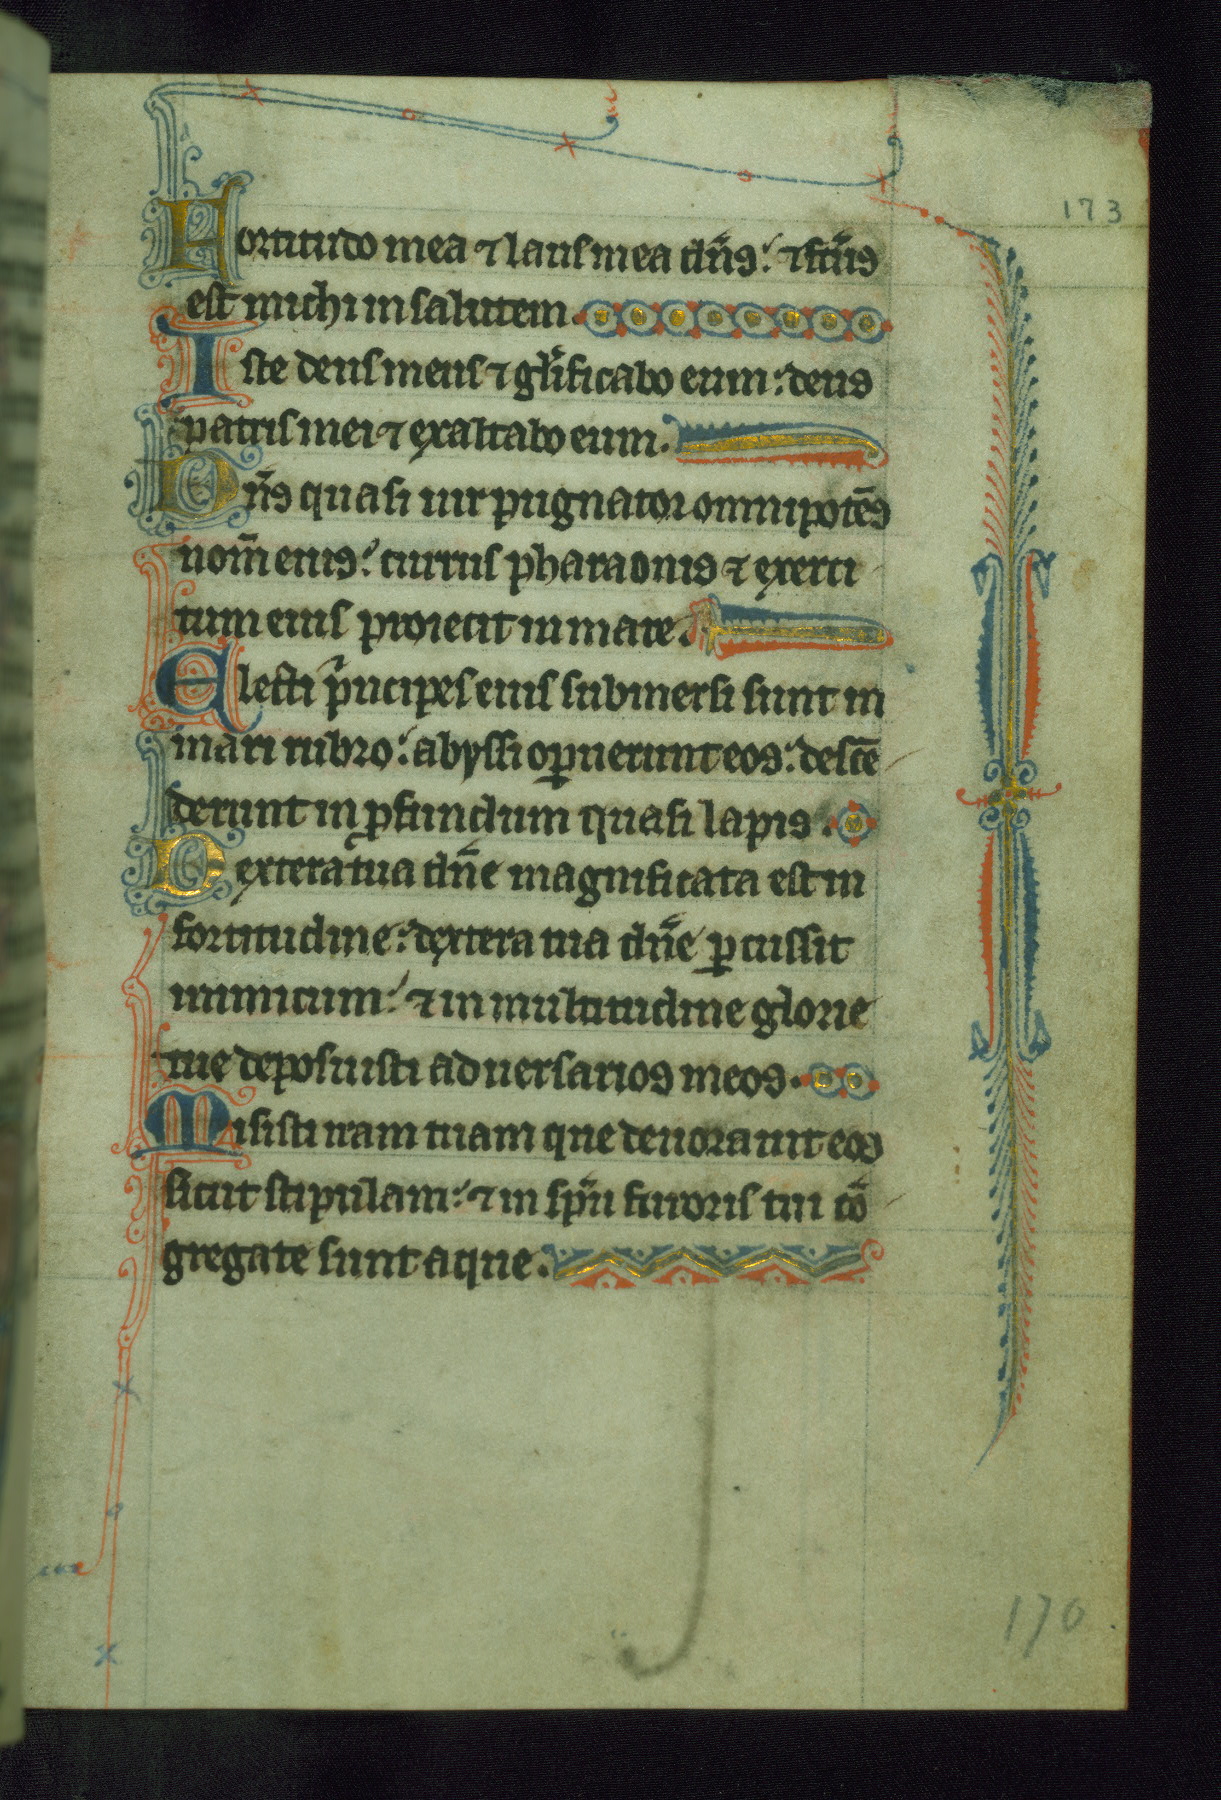 173
Fortitudo mea ⁊ laus mea dn̄s: ⁊ fc̄us
est michi in salutem.
Iste deus meus ⁊ gl̄ificabo eum: deus
patris mei ⁊ exaltabo eum.
Dn̄s quasi uir pugnator omnipotēs
nom̄ eius: currus pharaonis ⁊ exerci
tum eius proiecit in mare.
Electi pͥncipes eius submersi sunt in
mari rubro: abyssi opꝰuerunt eos: descē
derunt in ꝓfundum quasi lapis.
Dextera tua dn̄e magnificata est in
fortitudine: dextera tua dn̄e ꝑcussit
inimicum: ⁊ in multitudine glorie
tue deposuisti aduersarios meos.
Misisti iram tuam que deuorauit eos
sicut stipulam: ⁊ in spū furoris tui cō
gregate sunt aque.
170